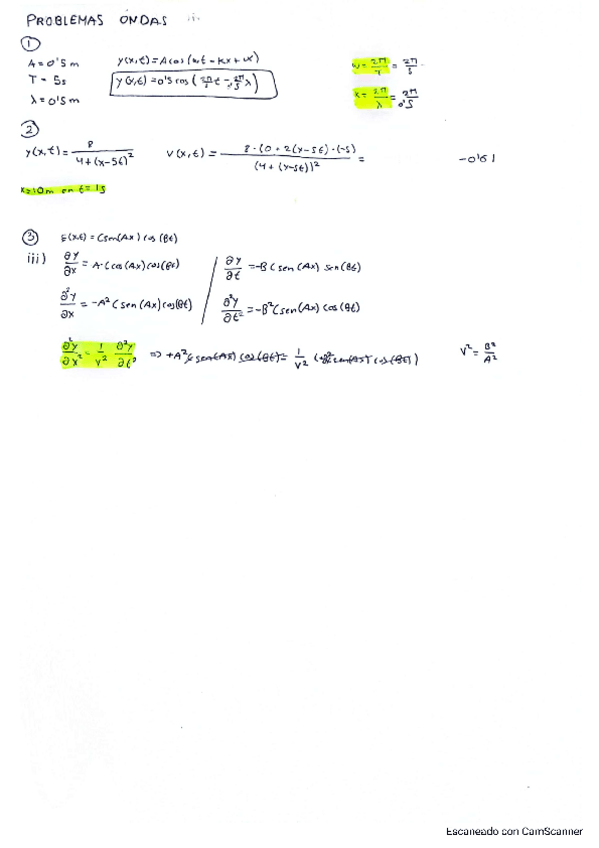 PROBLEMAS ONDAS iii
①
A = 0'5 m
y(x,t) = A cos (ωt - kx + α)
T = 5s
y(x,t) = 0'5 cos (2π/5 t - 2π/0'5 λ)
λ = 0'5 m
ω = 2π/T = 2π/5
k = 2π/λ = 2π/0'5
②
y(x,t) = 8 / 4 + (x-5t)²
v(x,t) = 8·(0 + 2(x-5t)·(-5) / (4 + (x-5t))² =
-0'61
x=10m en t=1s
③ E(x,t) = C sen(Ax) cos(Bt)
iii) ∂y/∂x = A·C cos(Ax) cos(Bt)
∂y/∂t = -B C sen(Ax) sen(Bt)
∂²y/∂x = -A² C sen(Ax) cos(Bt)
∂²y/∂t² = -B² C sen(Ax) cos(Bt)
∂²y/∂x² = 1/v² ∂²y/∂t² ⇒ +A² C sen(Ax) cos(Bt) = 1/v² sen(Ax) cos(Bt)
v² = B²/A²
Escaneado con CamScanner